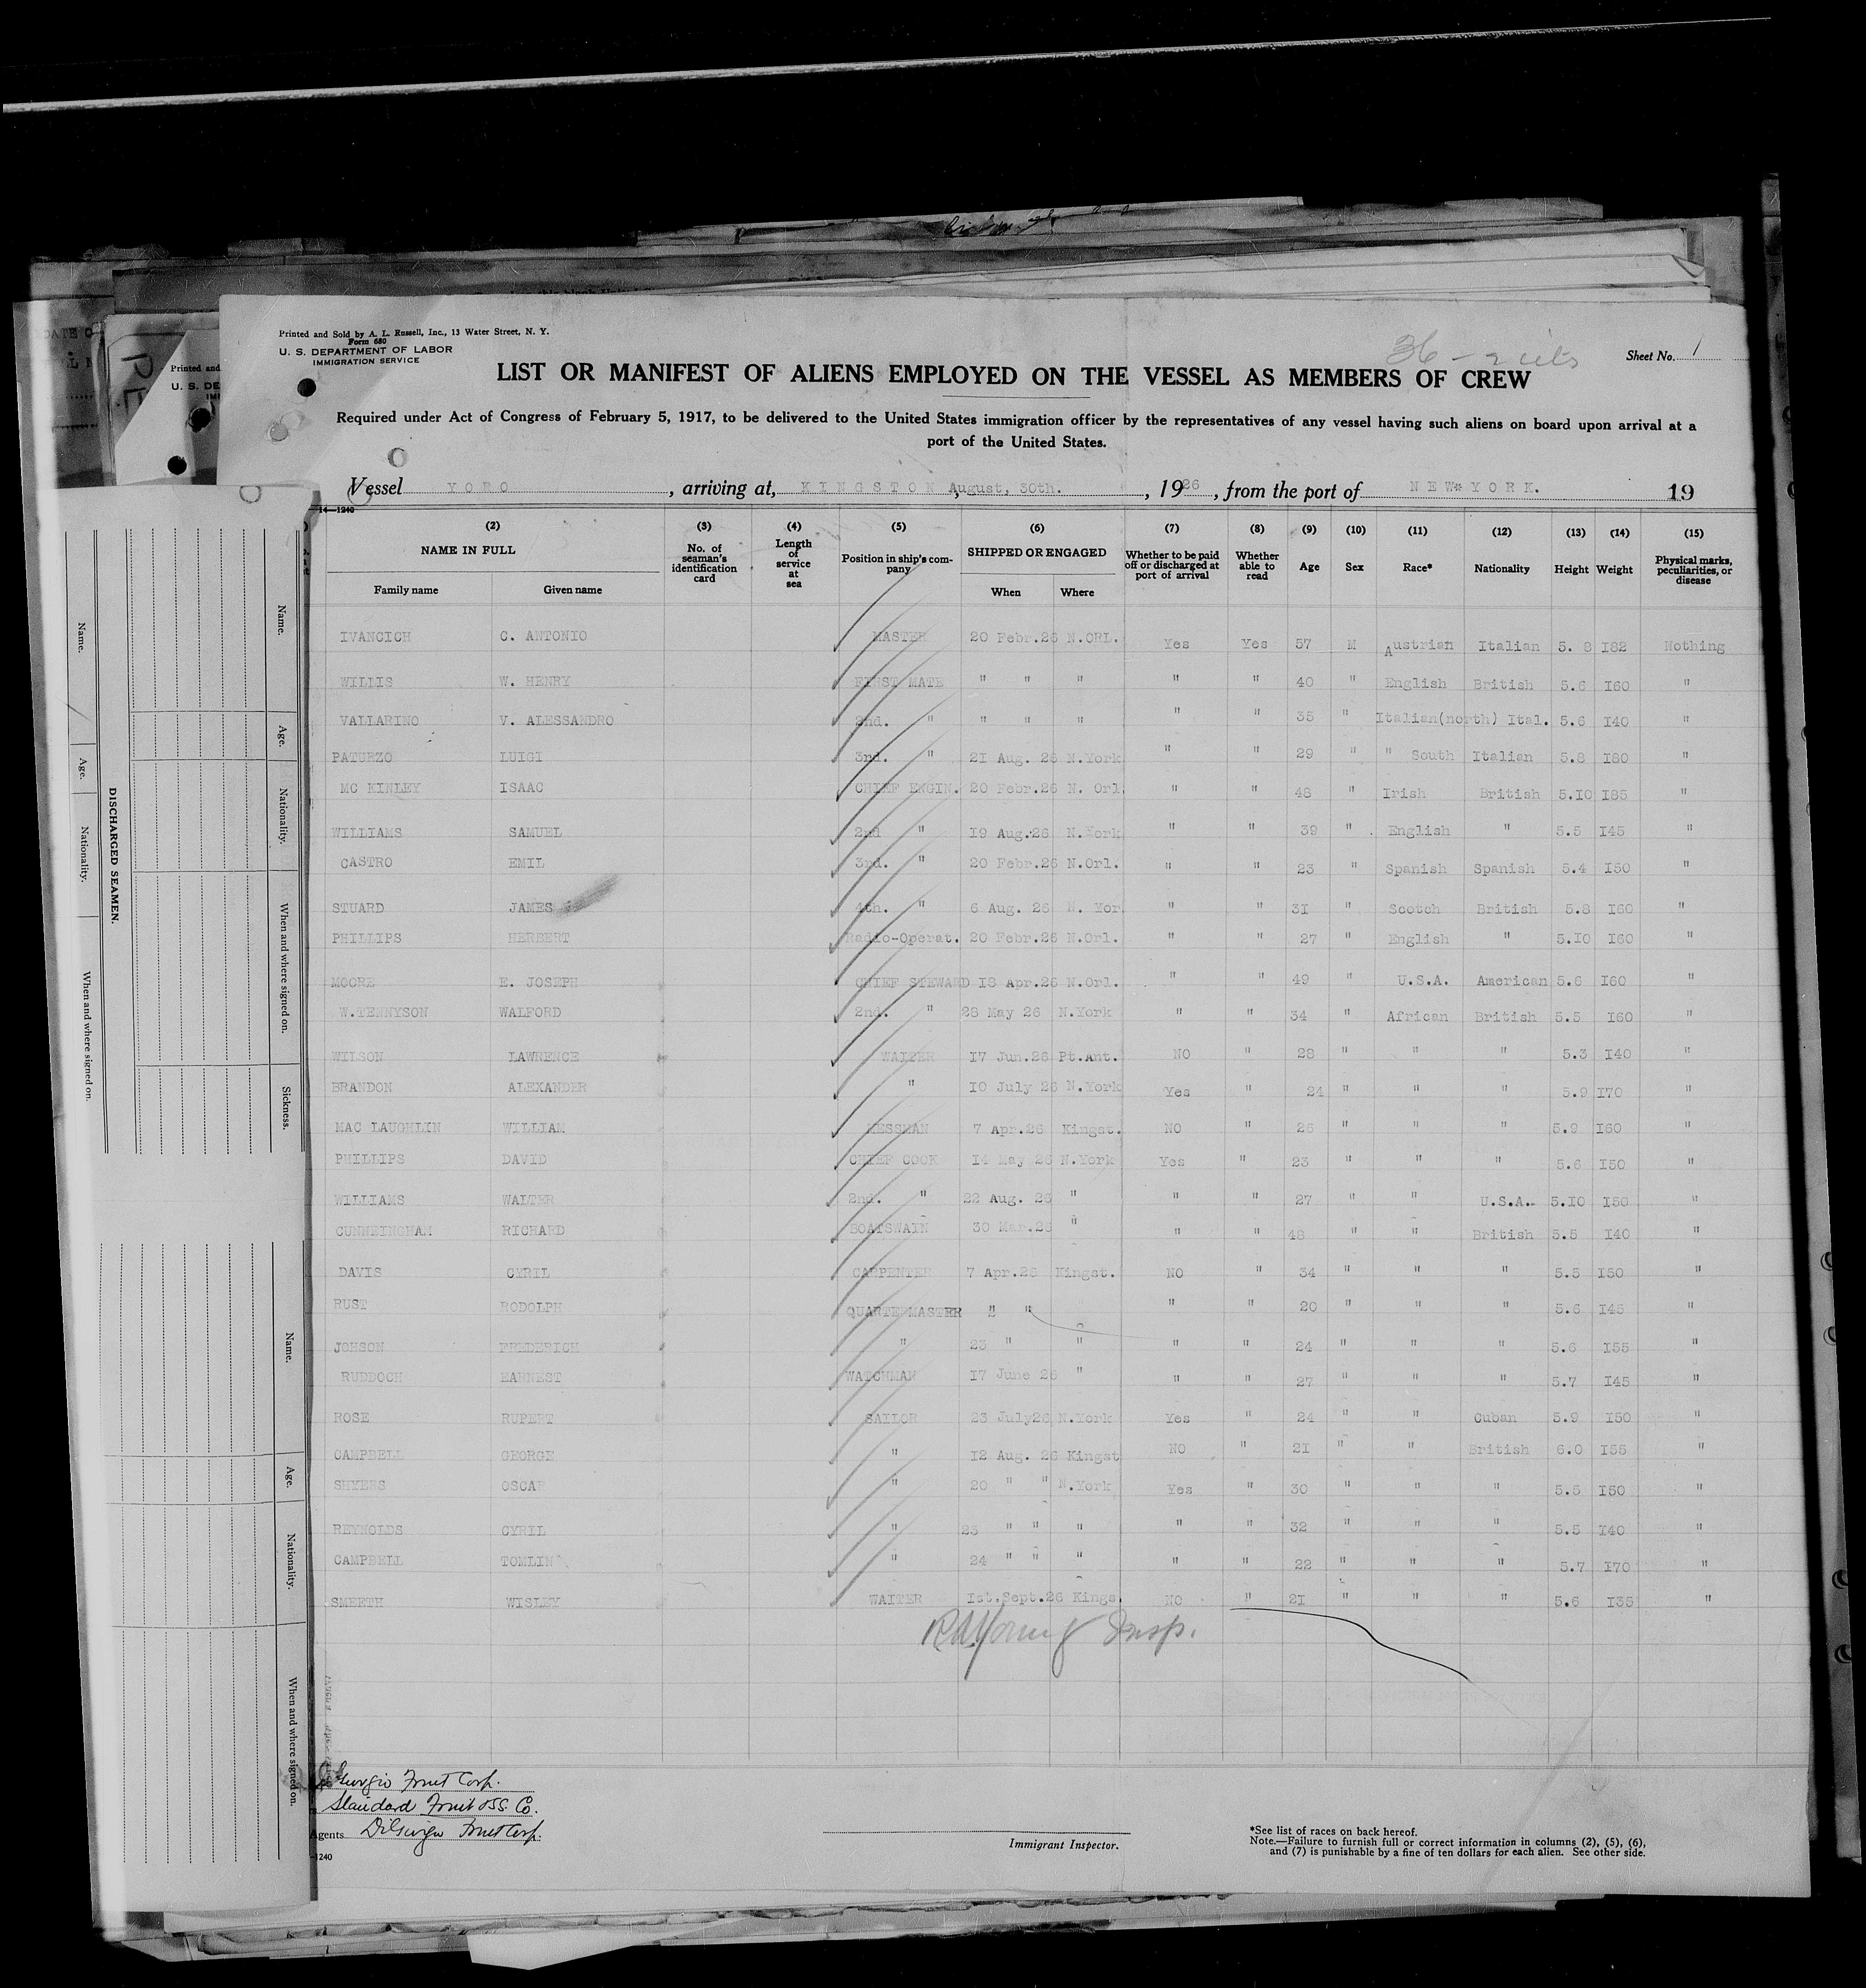 Printed and Sold by A. L. Russell, Inc., 13 Water Street, N. Y.
Form 680
U. S. DEPARTMENT OF LABOR
IMMIGRATION SERVICE
36 -
Sheet No. 1
LIST OR MANIFEST OF ALIENS EMPLOYED ON THE VESSEL AS MEMBERS OF CREW
Required under Act of Congress of February 5, 1917, to be delivered to the United States immigration officer by the representatives of any vessel having such aliens on board upon arrival at a
port of the United States.
Vessel YORO, arriving at, KINGSTON, August, 30th., 1926, from the port of NEW*YORK. 19
14—1240
(2) (3) (4) (5) (6) (7) (8) (9) (10) (11) (12) (13) (14) (15)
NAME IN FULL No. of seaman's identification card Length of service at sea Position in ship's company SHIPPED OR ENGAGED Whether to be paid off or discharged at port of arrival Whether able to read Age Sex Race* Nationality Height Weight Physical marks, peculiarities, or disease
Family name Given name When Where
IVANCICH C. ANTONIO MASTER 20 Febr.26 N.ORL. Yes Yes 57 M Austrian Italian 5. 8 I82 Nothing
WILLIS W. HENRY FIRST MATE " " " " " 40 " English British 5.6 I60 "
VALLARINO V. ALESSANDRO 2nd. " " " " " " 35 " Italian(north) Ital. 5.6 I40 "
PATURZO LUIGI 3rd. " 2I Aug. 26 N.York " " 29 " " South Italian 5.8 I80 "
MC KINLEY ISAAC CHIEF ENGIN. 20 Febr.26 N. Orl " " 48 " Irish British 5.IO I85 "
WILLIAMS SAMUEL 2nd " I9 Aug.26 N.York " " 39 " English " 5.5 I45 "
CASTRO EMIL 3rd. " 20 Febr.26 N.Orl. " " 23 " Spanish Spanish 5.4 I50 "
STUARD JAMES 4th. " 6 Aug. 26 N. Yor " " 3I " Scotch British 5.8 I60 "
PHILLIPS HERBERT Radio-Operat. 20 Febr.26 N.Orl. " " 27 " English " 5.IO I60 "
MOORE E. JOSEPH CHIEF STEWARD I8 Apr.26 N.Orl. " " 49 " U.S.A. American 5.6 I60 "
W.TENNYSON WALFORD 2nd. " 28 May 26 N.York " " 34 " African British 5.5 I60 "
WILSON LAWRENCE WAITER I7 Jun.26 Pt.Ant. NO " 28 " " " 5.3 I40 "
BRANDON ALEXANDER " I0 July 26 N.York Yes " 24 " " " 5.9 I70 "
MAC LAUGHLIN WILLIAM MESSMAN 7 Apr.26 Kingst. NO " 26 " " " 5.9 I60 "
PHILLIPS DAVID CHIEF COOK I4 May 26 N.York Yes " 23 " " " 5.6 I50 "
WILLIAMS WALTER 2nd. " 22 Aug. 26 " " " 27 " " U.S.A. 5.IO I50 "
CUNNEINGHAM RICHARD BOATSWAIN 30 Mar.26 " " " 48 " " British 5.5 I40 "
DAVIS CYRIL CARPENTER 7 Apr.26 Kingst. NO " 34 " " " 5.5 I50 "
RUST RODOLPH QUARTERMASTER " " " " 20 " " " 5.6 I45 "
JOHSON FREDERICH " 23 " " " " 24 " " " 5.6 I55 "
RUDDOCH EARNEST WATCHMAN I7 June 26 " " " 27 " " " 5.7 I45 "
ROSE RUPERT SAILOR 23 July26 N.York Yes " 24 " " Cuban 5.9 I50 "
CAMPBELL GEORGE " I2 Aug. 26 Kingst NO " 2I " " British 6.0 I55 "
SHYERS OSCAR " 20 " " N.York Yes " 30 " " " 5.5 I50 "
REYNOLDS CYRIL " 23 " " " " " 32 " " " 5.5 I40 "
CAMPBELL TOMLIN " 24 " " " " " 22 " " " 5.7 I70 "
SMEETH WISLEY WAITER Ist.Sept.26 Kings. NO " 2I " " " 5.6 I35 "
R A Young Insp.
Giorgio Fruit Corp.
Standard Fruit & SS. Co.
Agents DiGiorgio Fruit Corp.
Immigrant Inspector.
*See list of races on back hereof.
Note.—Failure to furnish full or correct information in columns (2), (5), (6),
and (7) is punishable by a fine of ten dollars for each alien. See other side.
-1240
DISCHARGED SEAMEN.
Name. Age. Nationality. When and where signed on. Sickness.
Name. Age. Nationality. When and where signed on.
Name. Age. Nationality. When and where signed on.
Printed and
U. S. DE